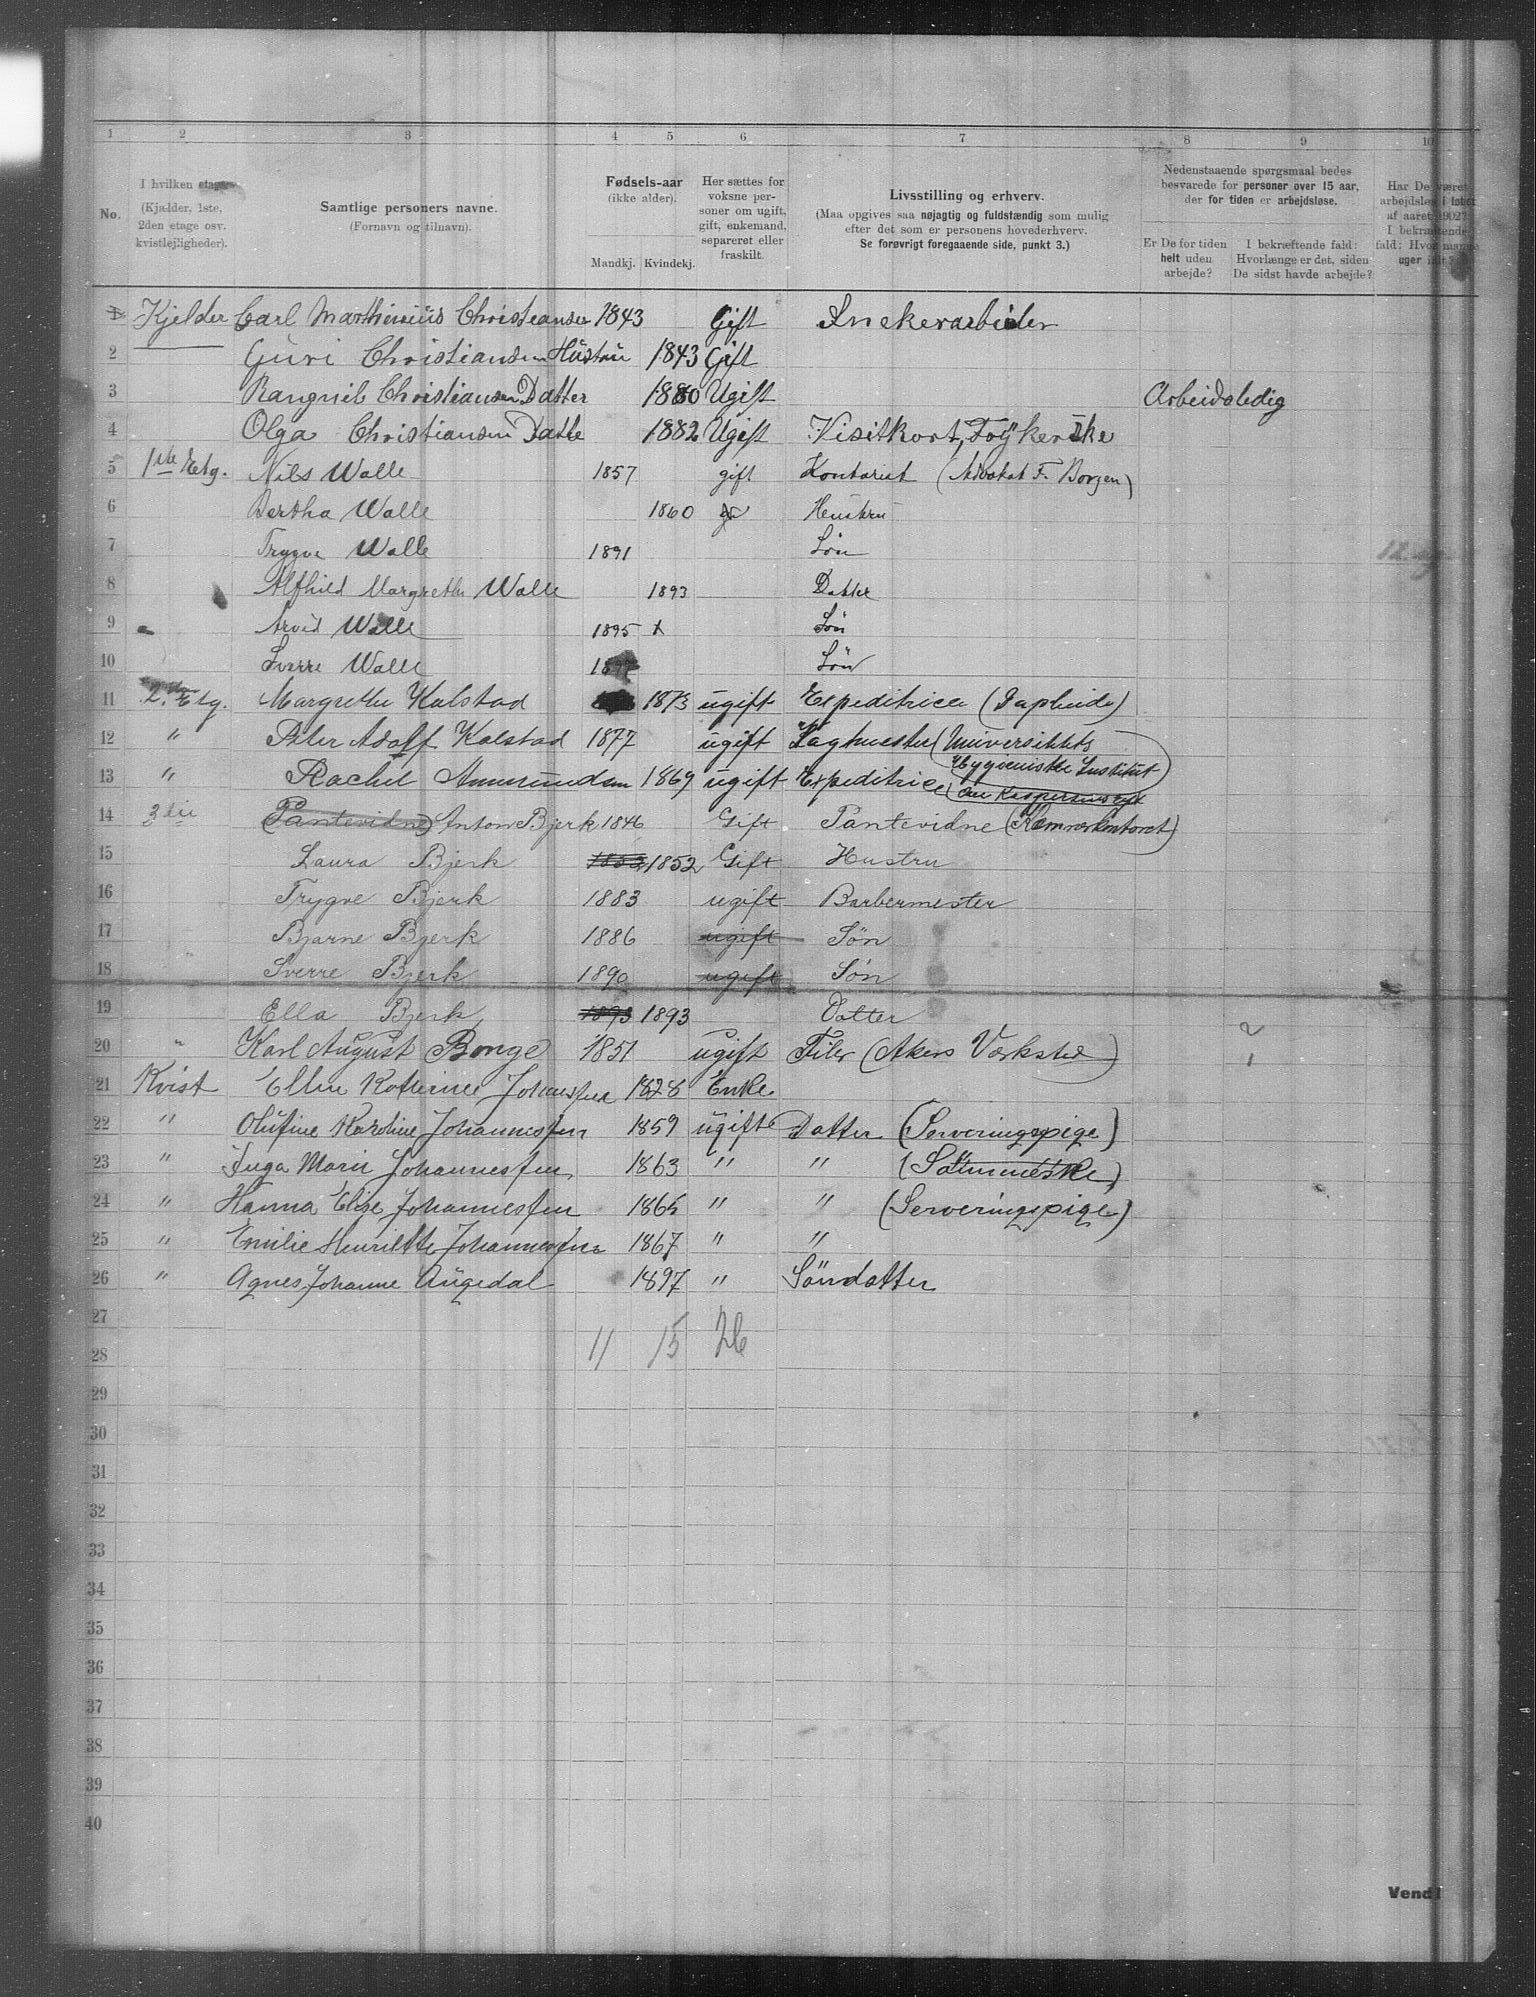 1 2 3 4 5 6 7 8 9 10
No.
I hvilken etage
(Kjælder, 1ste,
2den etage osv.
kvistlejligheder).
Samtlige personers navne.
(Fornavn og tilnavn).
Fødsels-aar
(ikke alder).
Mandkj. Kvindekj.
Her sættes for
voksne per-
soner om ugift,
gift, enkemand,
separeret eller
fraskilt.
Livsstilling og erhverv.
(Maa opgives saa nøjagtig og fuldstændig som mulig
efter det som er personens hovederhverv.
Se forøvrigt foregaaende side, punkt 3.)
Nedenstaaende spørgsmaal bedes
besvarede for personer over 15 aar,
der for tiden er arbejdsløse.
Er De for tiden
helt uden
arbejde?
I bekræftende fald:
Hvorlænge er det, siden
De sidst havde arbejde?
Har De været
arbejdsløs i løbet
af aaret 1902?
I bekræftende
fald: Hvor mange
uger ialt?
1 Kjelder Carl Marthinius Christiansen 1843 Gift Snekerarbeider
2 Guri Christiansen Hustru 1843 Gift
3 Rangnil Christiansen Datter 1880 Ugift Arbeidsledig
4 Olga Christiansen Datte 1882 Ugift Visitkort,
5 1ste Etg. Nils Walle 1857 gift Kontorist (Advokat F. Borgen)
6 Bertha Walle 1860 Heustru
7 Trygve Walle 1891 Søn 12
8 Alfhild Margrethe Walle 1893 Datter
9 Arvid Walle 1895 x Søn
10 Sverre Walle Søn
11 2. Etg. Margrethe Kalstad 1873 ugift Expeditrice
12 " Peter Adolf Kalstad 1877 ugift (Universitets
Hygieniske Institut)
13 " Rachel Ammundsen 1869 ugift Expeditrice
14 3die (Pantevidne) Anton Bjerk 1846 Gift Pantevidne (Kemnerkontoret)
15 Laura Bjerk 1852 1852 Gift Hustru
16 Trygve Bjerk 1883 ugift Barbermester
17 Bjarne Bjerk 1886 ugift Søn
18 Sverre Bjerk 1890 ugift Søn
19 Ella Bjerk 1893 1893 Datter
2
20 " Karl August Bonge 1851 ugift Filer (Akers Værksted) 1
21 Kvist Ellen Katherine Johannesen 1828 Enke
22 " Olufine Karoline Johannessen 1859 ugift Datter (Serveringspige)
23 " Inga Marie Johannessen 1863 " " (Sømmeske)
24 " Hanna Elise Johannessen 1865 " " (Serveringspige)
25 " Emilie Henriette Johannessen 1867 " "
26 " Agnes Johanne Augedal 1897 " Søndatter
27
11 15 26
28
29
30
31
32
33
34
35
36
37
38
39
40
Vend!